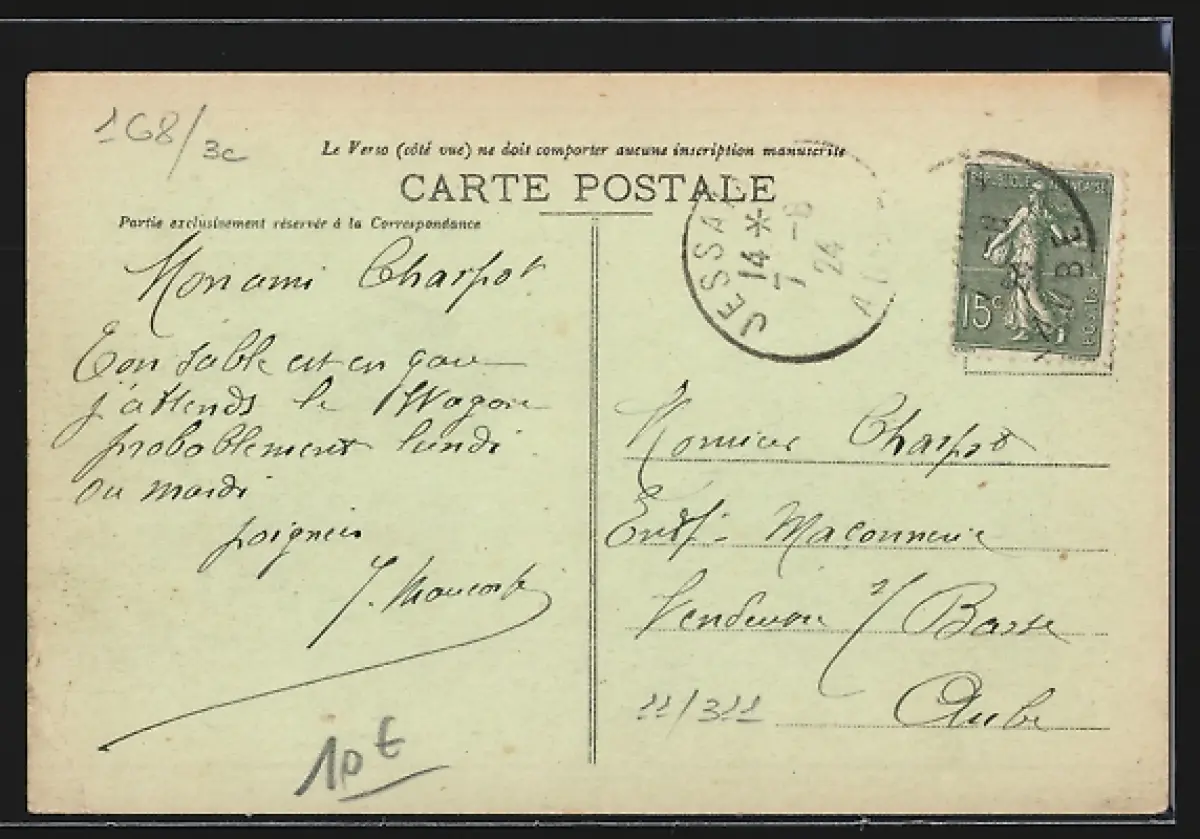 168/3c
Le Verso (côté vue) ne doit comporter aucune inscription manuscrite
CARTE POSTALE
Partie exclusivement réservée à la Correspondance
JESSA
14 *
7 - 8
24
AUBE
REPUBLIQUE FRANÇAISE
15c
POSTES
Mon ami Charpot
Ton sable est en gare
j'attends le Wagon
probablement lundi
ou mardi
poignées
J.
Monsieur Charpot
Entr. Maçonnerie
Vendeuvre s/ Barse
Aube
11/311
10€